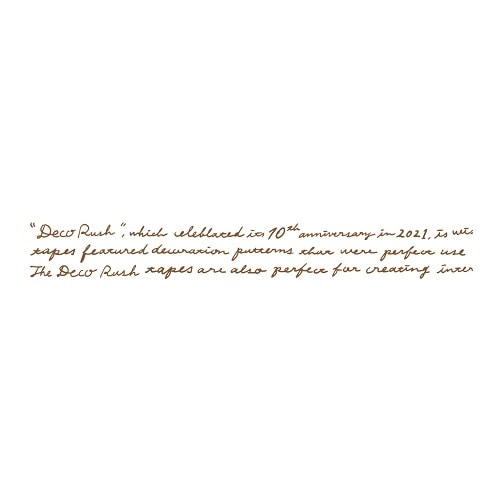 "Deco Rush", which celeblated its 10th anniversary in 2021, is
tapes featured decoration patterns that were perfect use
The Deco Rush tapes are also perfect for creating inter